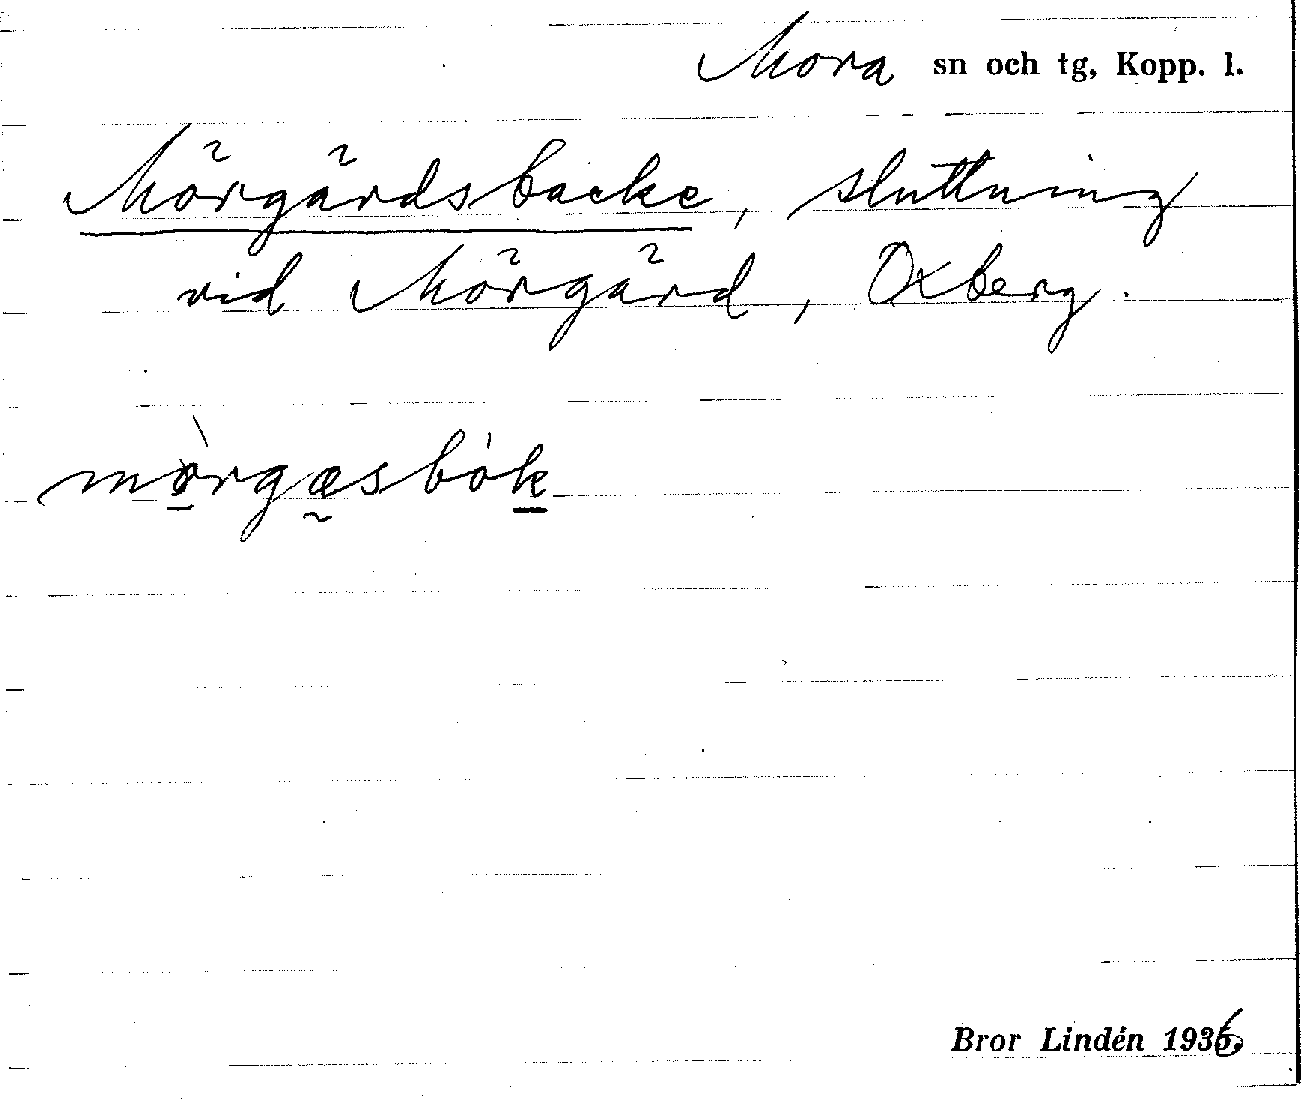 Mora sn och tg, Kopp. l.
Mörgårdsbacke, sluttning
vid Mörgård, Oxberg.
Bror Lindén 1936.